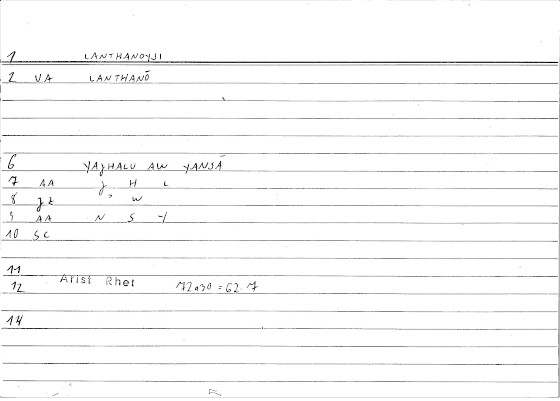 1 LANTHANOYSI
2 VA LANTHANŌ
6 YAJHALU AW YANSĀ
7 AA J H L
8 JL , W
9 AA N S -Y
10 SC
11
12 Arist Rhet 72a30 = 62.7
14